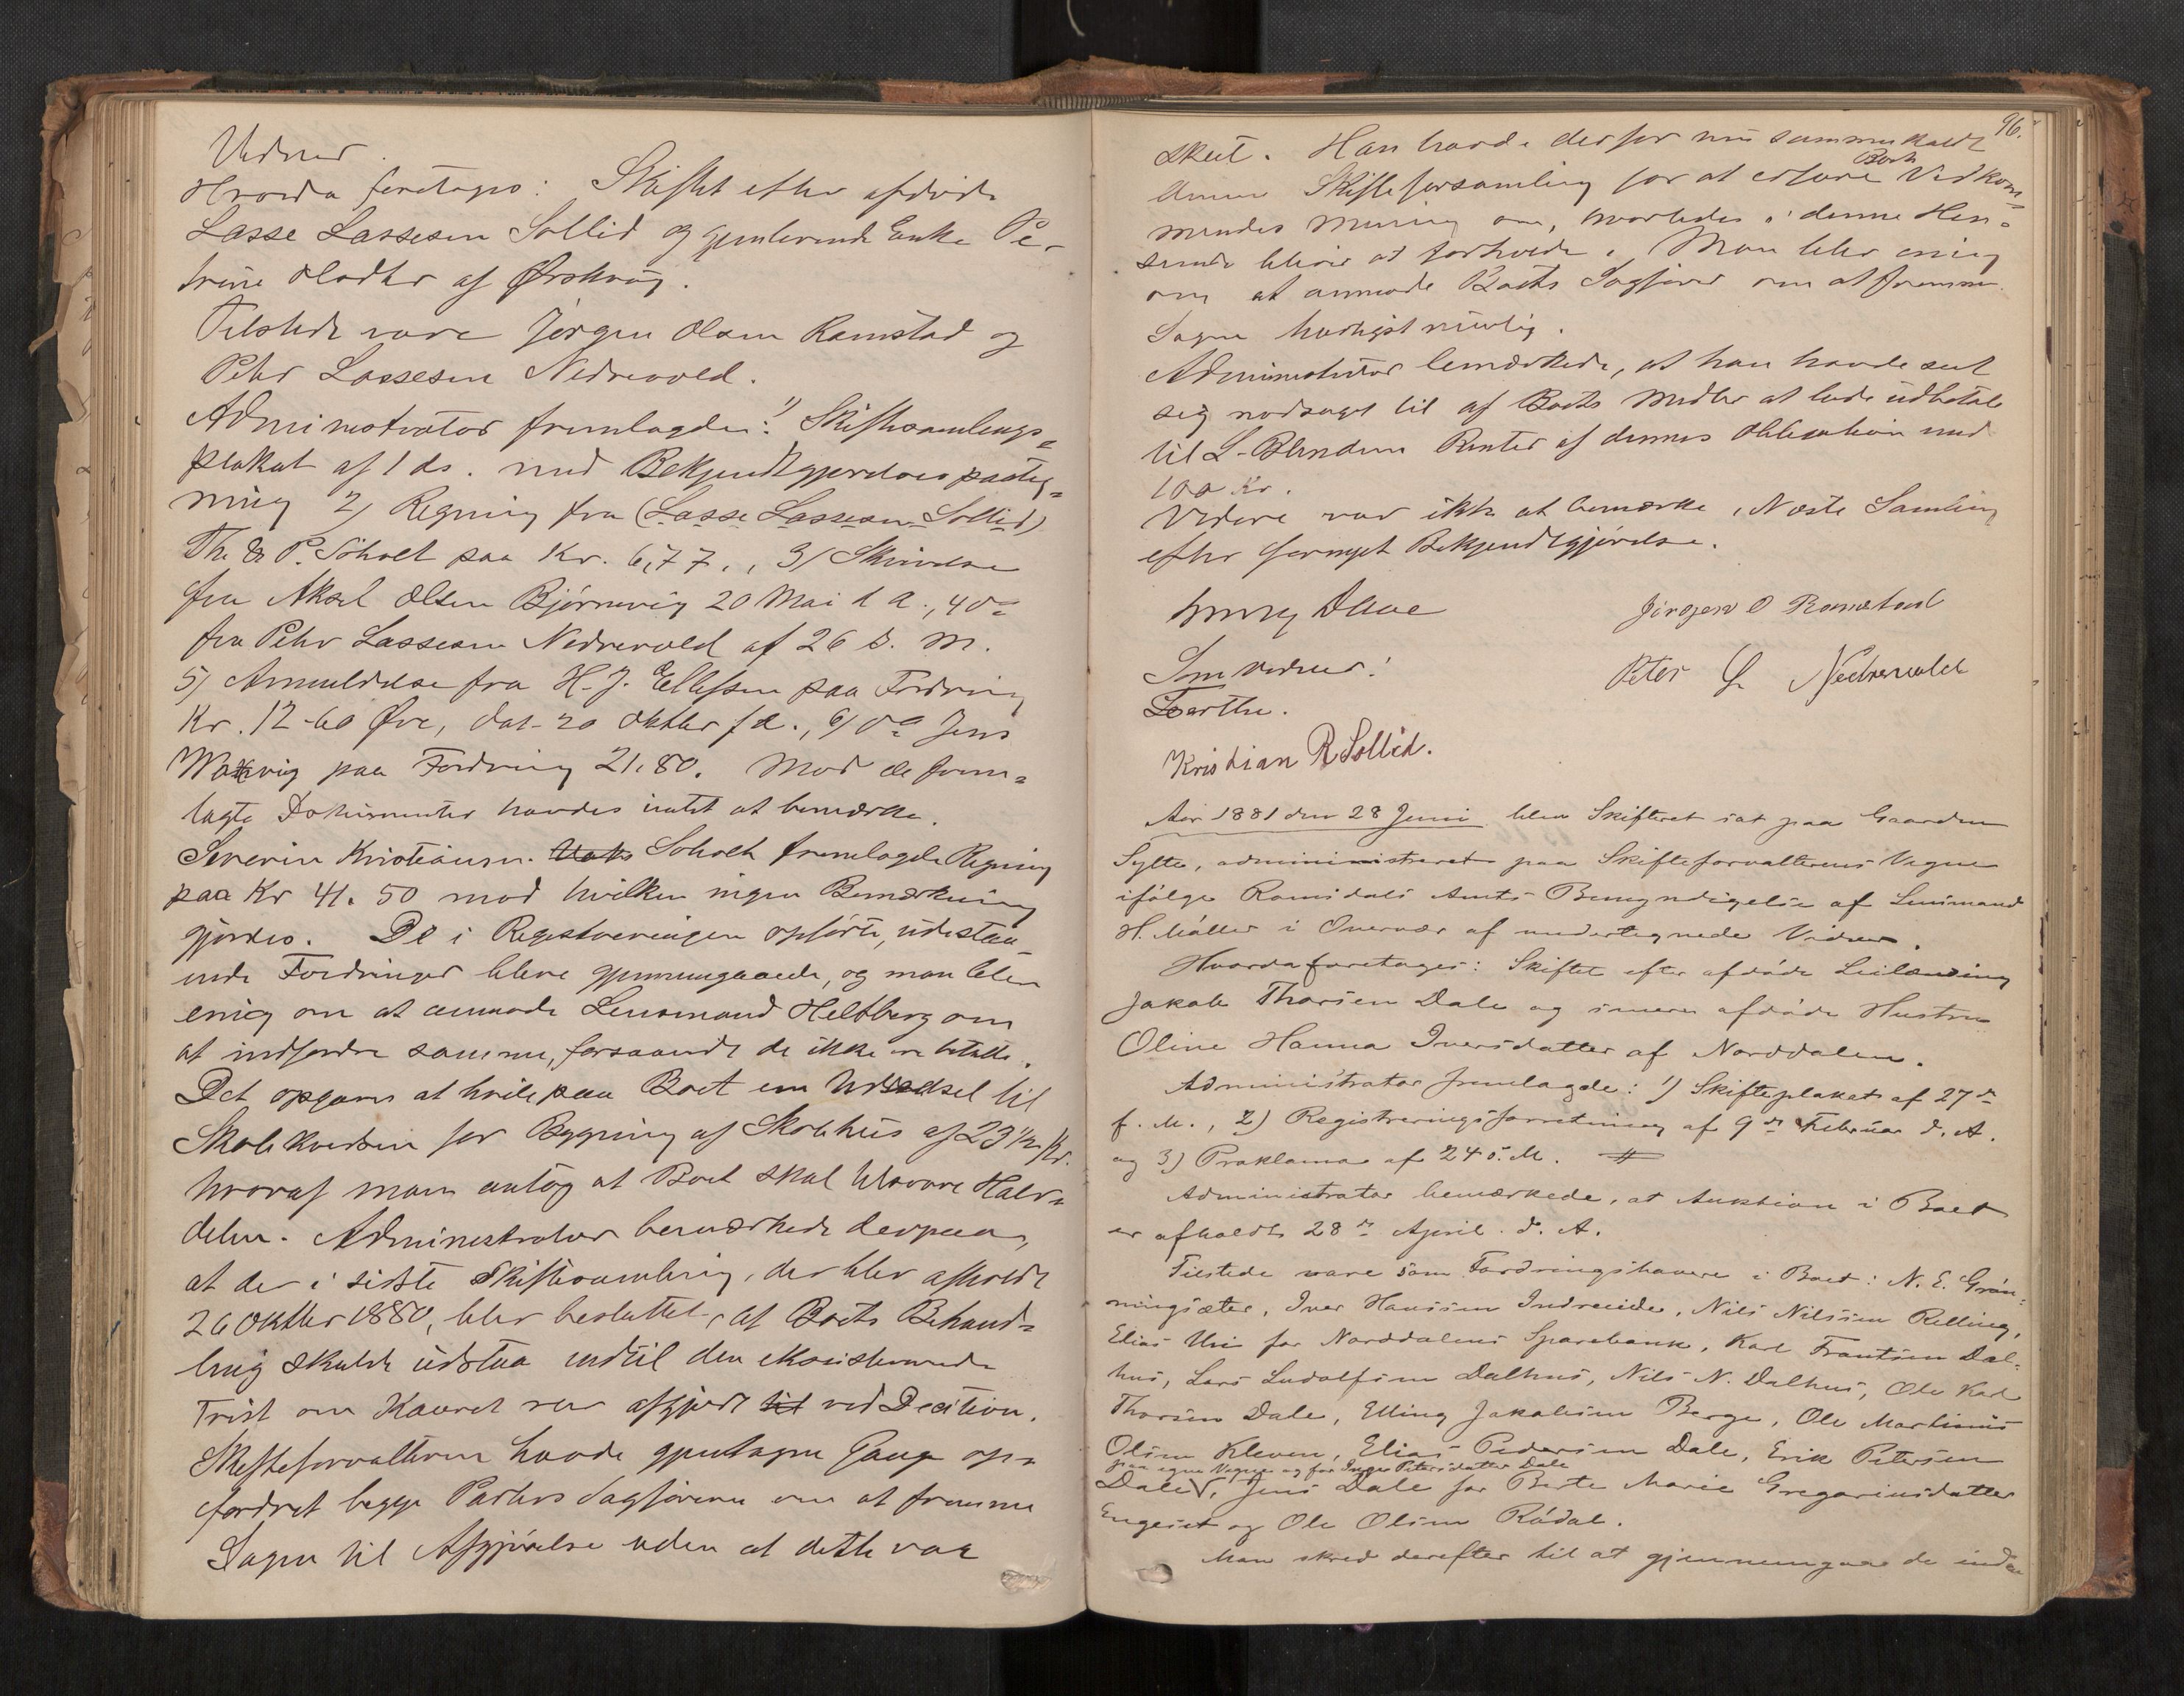 Vidner.
Hvorda foretages: Skiftet efter afdøde
Lasse Lassesen Sollid og gjenlevende Enke Pe-
trine Olsdtr af Ørskoug.
Tilstede vare Jørgen Olsen Ramstad og
Peter Lassesen Nedrevold.
Administrator fremlagde: 1) Skiftesamlings-
plakat af 1 ds. med Bekjendtgjørelsespaateg-
ning 2) Regning fra (Lasse Lassesen Sollid)
Th. & P. Søholt paa Kr. 6,77., 3) Skrivelse
fra Aksel Olsen Bjørnevig 20 Mai d A., 4 do
fra Peter Lassesen Nedrevold af 26 d. M.
5) Anmeldelse fra H. J. Ellefsen paa Fordring
Kr. 12-60 Øre, dat. 20 Oktbr f A., 6) do Jens
Waxvig paa Fordring 21.80. Mod de frem-
lagte Dokumenter havdes intet at bemærke.
Severin Kristiansen Søholt fremlagde Regning
paa Kr 41.50 mod hvilken ingen Bemærkning
gjordes. De i Registreringen opførte, udestaa-
ende Fordringer bleve gjennemgaaede, og man blev
enig om at anmode Lensmand Heltberg om
at indfordre samme, forsaavidt de ikke ere betalte.
Det opgaves at hvile paa Boet en Udredsel til
Skolekredsen for Bygning af Skolehus af 23 1/2 Kr.
hvoraf man antog at Boet skal udrede Halv-
delen. Administrator bemærkede derpaa,
at der i sidste Skiftesamling, der blev afholdt
26 Oktbr 1880, blev besluttet, at Boets Behand-
ling skulde udstaa indtil den eksisterende
Trist om Kaaret var afgjort til ved Decition.
Skifteforvalteren havde gjentagne Gange op-
fordret begge Parters Sagførere om at fremme
Sagen til Afgjørelse uden at dette var
96.
skeet. Han havde derfor nu sammenkaldt
denne Skiftesamling for at erfare Boets Vedkom-
mendes Mening om, hvorledes i denne Hen-
seende bliver at forholde. Man blev enig
om at anmode Boets Sagfører om at fremme
Sagen hurtigst muligt.
Administrator bemærkede, at han havde seet
sig nødsaget til af Boets Midler at lade udbetale
til L. Blindem Renter af dennes Obligation med
100 Kr.
Videre var ikke at bemærke, Næste Samling
efter fornyet Bekjendtgjørelse.
Jørgen O Ramstad
Som Vidner:
Peter L Nedrevold
Kristian R Sollid.
Aar 1881 den 28 Juni blev Skifteret sat paa Gaarden
Sylte, administreret paa Skifteforvalterens Vegne
ifølge Romsdals Amts Bemyndigelse af Lensmand
H. Møller i Overvær af undertegnede Vidner.
Hvorda foretages: Skiftet efter afdøde Leilænding
Jakob Thorsen Dale og senere afdøde Hustru
Oline Hanna Iversdatter af Norddalen.
Administrator fremlagde: 1) Skifteplakat af 27de
f. M., 2) Registreringsforretning af 9de Februar d. A.
og 3) Proklama af 24 s. M.
Administrator bemærkede, at Auktion i Boet
er afholdt 28de April d. A.
Tilstede vare som Fordringshavere i Boet: N. E. Grøn-
ningsæter, Iver Hansen Indreeide, Nils Nilssen Relling,
Elias Uri for Norddalens Sparebank, Karl Frantsen Dal-
hus, Lars Ludolfsen Dalhus, Nils N. Dalhus, Ole Karl
Thorsen Dale, Elling Jakobsen Berge, Ole Martinus
Olsen Kleven, Elias Pedersen Dale, Erik Petersen
paa egne Vegne og for Inger Petersdatter Dale
Dale, Jens Dale for Berte Marie Gregoriusdatter
Engeset og Ole Olsen Rødal.
Man skred derefter til at gjennemgaa de inds-